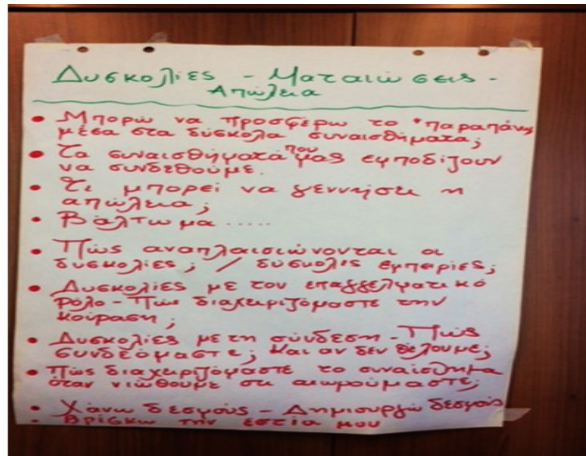 Δυσκολίες - Ματαιώσεις -
Απώλεια
• Μπορώ να προσφέρω το "παραπάνω
μέσα στα δύσκολα συναισθήματα;
• Τα συναισθήματα που μας εμποδίζουν
να συνδεθούμε.
• Τι μπορεί να γεννήσει η
απώλεια;
• Βάλτωμα .....
• Πώς αναπλαισιώνονται οι
δυσκολίες; / δύσκολες εμπειρίες;
• Δυσκολίες με τον επαγγελματικό
ρόλο - Πώς διαχειριζόμαστε την
κούραση;
• Δυσκολίες με τη σύνδεση - Πώς
συνδεόμαστε; Και αν δεν θέλουμε;
• Πώς διαχειριζόμαστε το συναίσθημα
όταν νιώθουμε ότι αιωρούμαστε;
• Χάνω δεσμούς - Δημιουργώ δεσμούς
• Βρίσκω την εστία μου